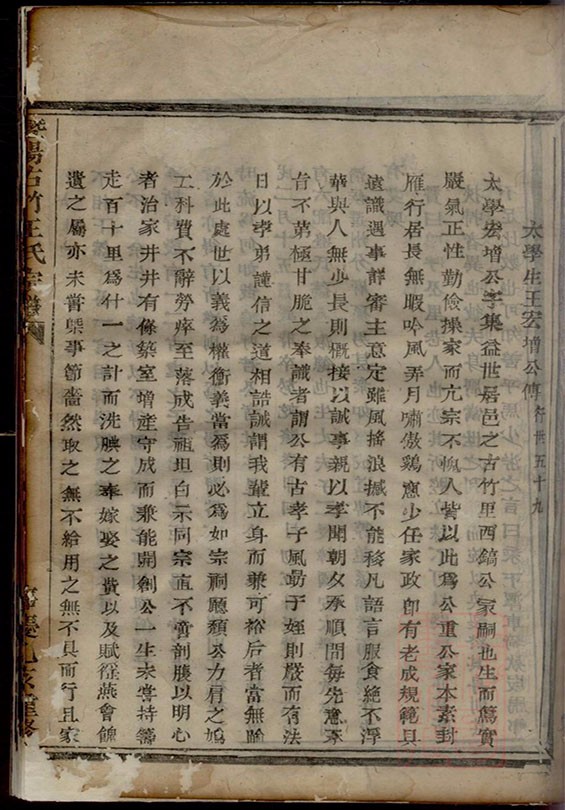 太學生王宏增公傳 行卅五十九
太學宏增公字集益世居邑之古竹里西鎬公家嗣也生而篤實
嚴氣正性勤儉操家而亢宗不愧人皆以此為公重公家本素封
雁行居長無暇吟風弄月嘯傲鷄窻少任家政卽有老成規範具
遠識遇事詳審主意定雖風搖浪撼不能移凡語言服食絕不浮
華與人無少長則概接以誠事親以孝聞朝夕奉順閒每先意承
旨不第極甘脆之奉識者謂公有古孝子風勗于姪則嚴而有法
日以孝弟謹信之道相誥誡謂我輩立身而兼可裕后者當無踰
於此處世以義為權衡義當為則必為如宗祠廳頹公力肩之鳩
工科費不辭勞瘁至落成告祖坦白示同宗直不啻剖膓以明心
者治家井井有條築室增產守成而兼能開創公一生未嘗持籌
走百十里為什一之計而洗腆之奉嫁娶之費以及賦徭燕會餽
遺之屬亦未嘗槩事節嗇然取之無不給用之無不具而行且家
暨陽古竹王氏宗譜